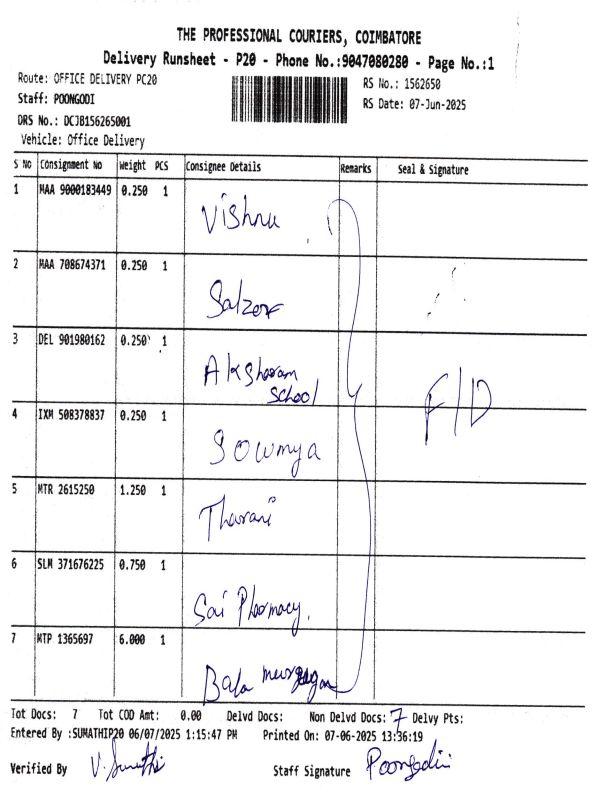 THE PROFESSIONAL COURIERS, COIMBATORE
Delivery Runsheet - P20 - Phone No.:9047080280 - Page No.:1
Route: OFFICE DELIVERY PC20
RS No.: 1562650
Staff: POONGODI
RS Date: 07-Jun-2025
DRS No.: DCJB156265001
Vehicle: Office Delivery
S No Consignment No Weight PCS Consignee Details Remarks Seal & Signature
1 MAA 9000183449 0.250 1
Vishnu
2 MAA 708674371 0.250 1
Salzer
3 DEL 901980162 0.250 1
Aksharam
School
F/D
4 IXM 508378837 0.250 1
Sowmya
5 MTR 2615250 1.250 1
Tharani
6 SLM 371676225 0.750 1
Sai Pharmacy.
7 MTP 1365697 6.000 1
Bala murugan
Tot Docs: 7 Tot COD Amt: 0.00 Delvd Docs: Non Delvd Docs: 7 Delvy Pts:
Entered By :SUMATHIP20 06/07/2025 1:15:47 PM Printed On: 07-06-2025 13:36:19
Verified By V. Sumathi Staff Signature Poongodi